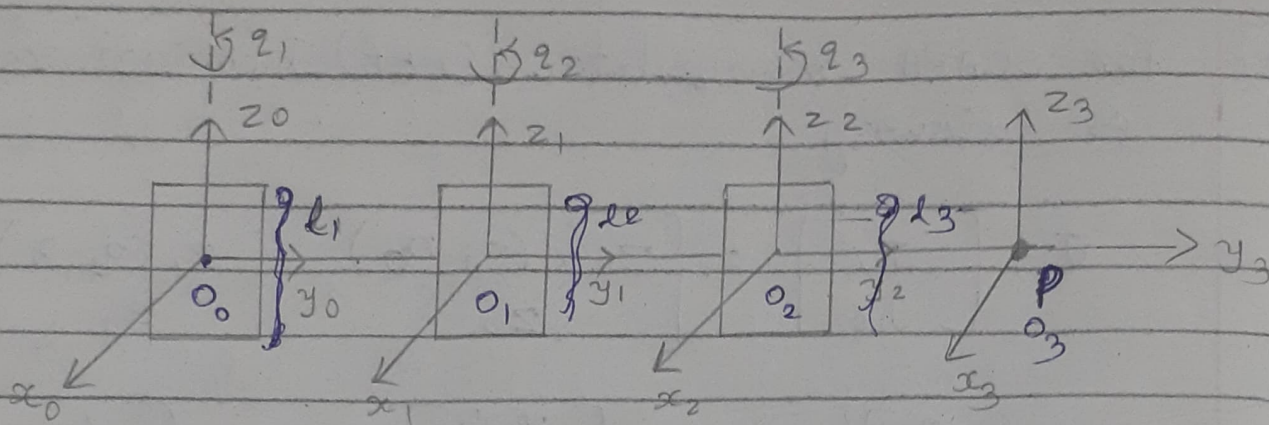 q1 q2 q3
z0 z1 z2 z3
l1 l2 l3
y0 y1 y2 y3
O0 O1 O2 P
O3
x0 x1 x2 x3